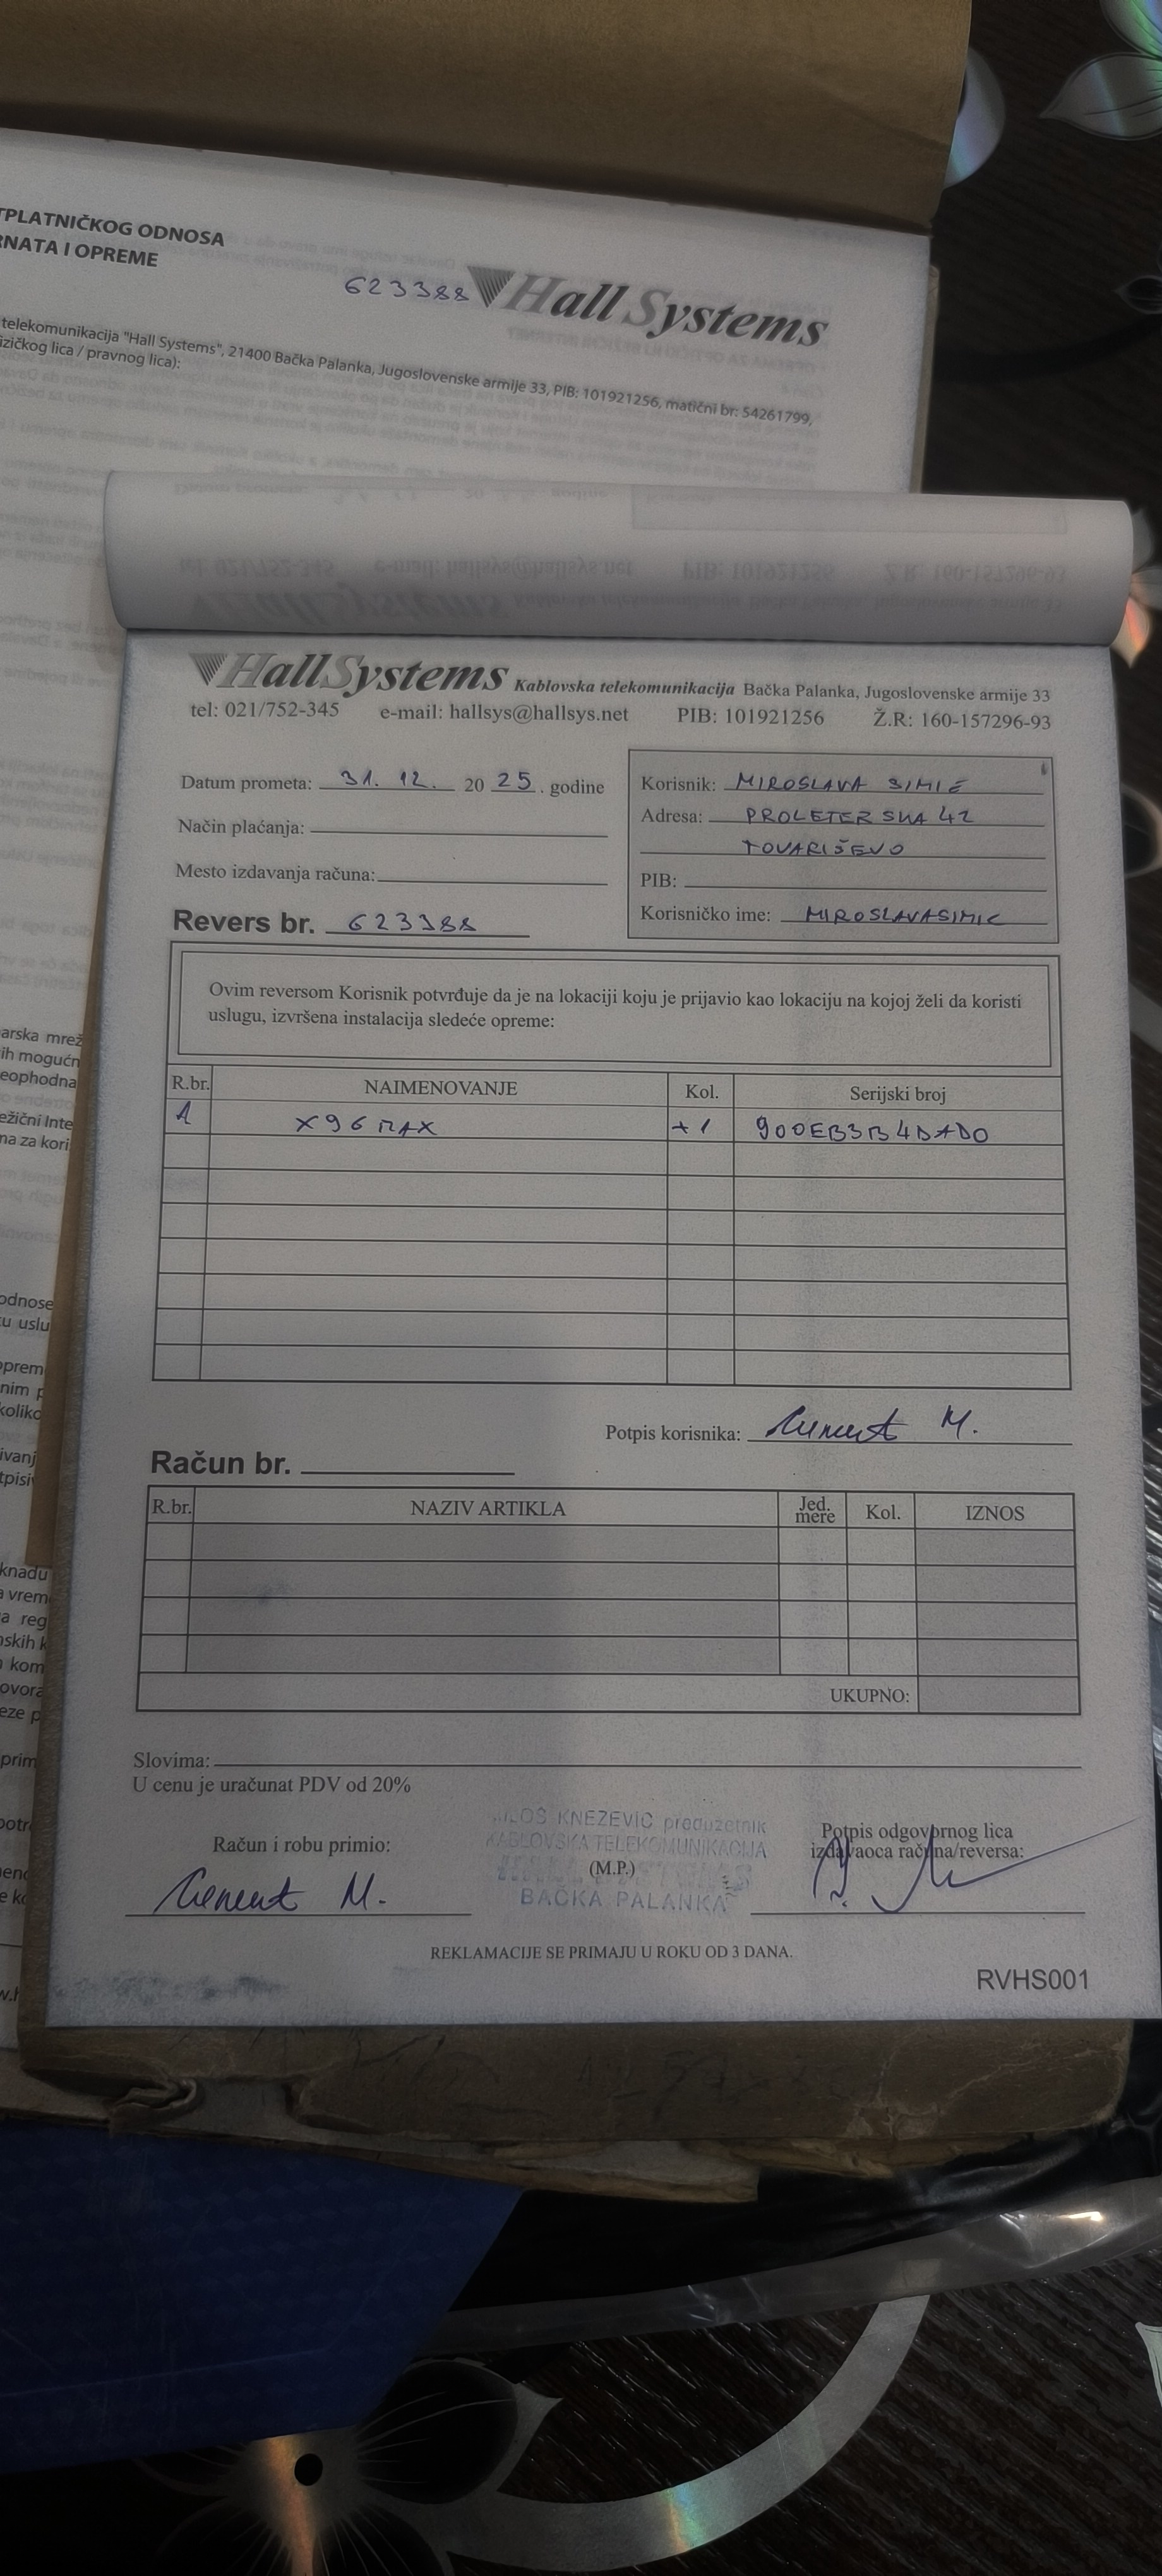 TPLATNIČKOG ODNOSA
RNATA I OPREME
623388 Hall Systems
telekomunikacija "Hall Systems", 21400 Bačka Palanka, Jugoslovenske armije 33, PIB: 101921256, matični br: 54261799,
izičkog lica / pravnog lica):
HallSystems Kablovska telekomunikacija Bačka Palanka, Jugoslovenske armije 33
tel: 021/752-345 e-mail: hallsys@hallsys.net PIB: 101921256 Ž.R: 160-157296-93
Datum prometa: 31. 12. 20 25. godine
Način plaćanja:
Mesto izdavanja računa:
Revers br. 623388
Korisnik: MIROSLAVA SIMIĆ
Adresa: PROLETERSKA 42
TOVARIŠEVO
PIB:
Korisničko ime: MIROSLAVASIMIC
Ovim reversom Korisnik potvrđuje da je na lokaciji koju je prijavio kao lokaciju na kojoj želi da koristi
uslugu, izvršena instalacija sledeće opreme:
R.br. NAIMENOVANJE Kol. Serijski broj
1 X96 MAX +1 900EB3B4DADO
Potpis korisnika: M.
Račun br.
R.br. NAZIV ARTIKLA Jed. mere Kol. IZNOS
UKUPNO:
Slovima:
U cenu je uračunat PDV od 20%
Račun i robu primio:
M.
MILOŠ KNEŽEVIĆ preduzetnik
KABLOVSKA TELEKOMUNIKACIJA
(M.P.)
BAČKA PALANKA
Potpis odgovornog lica
izdavaoca računa/reversa:
REKLAMACIJE SE PRIMAJU U ROKU OD 3 DANA.
RVHS001